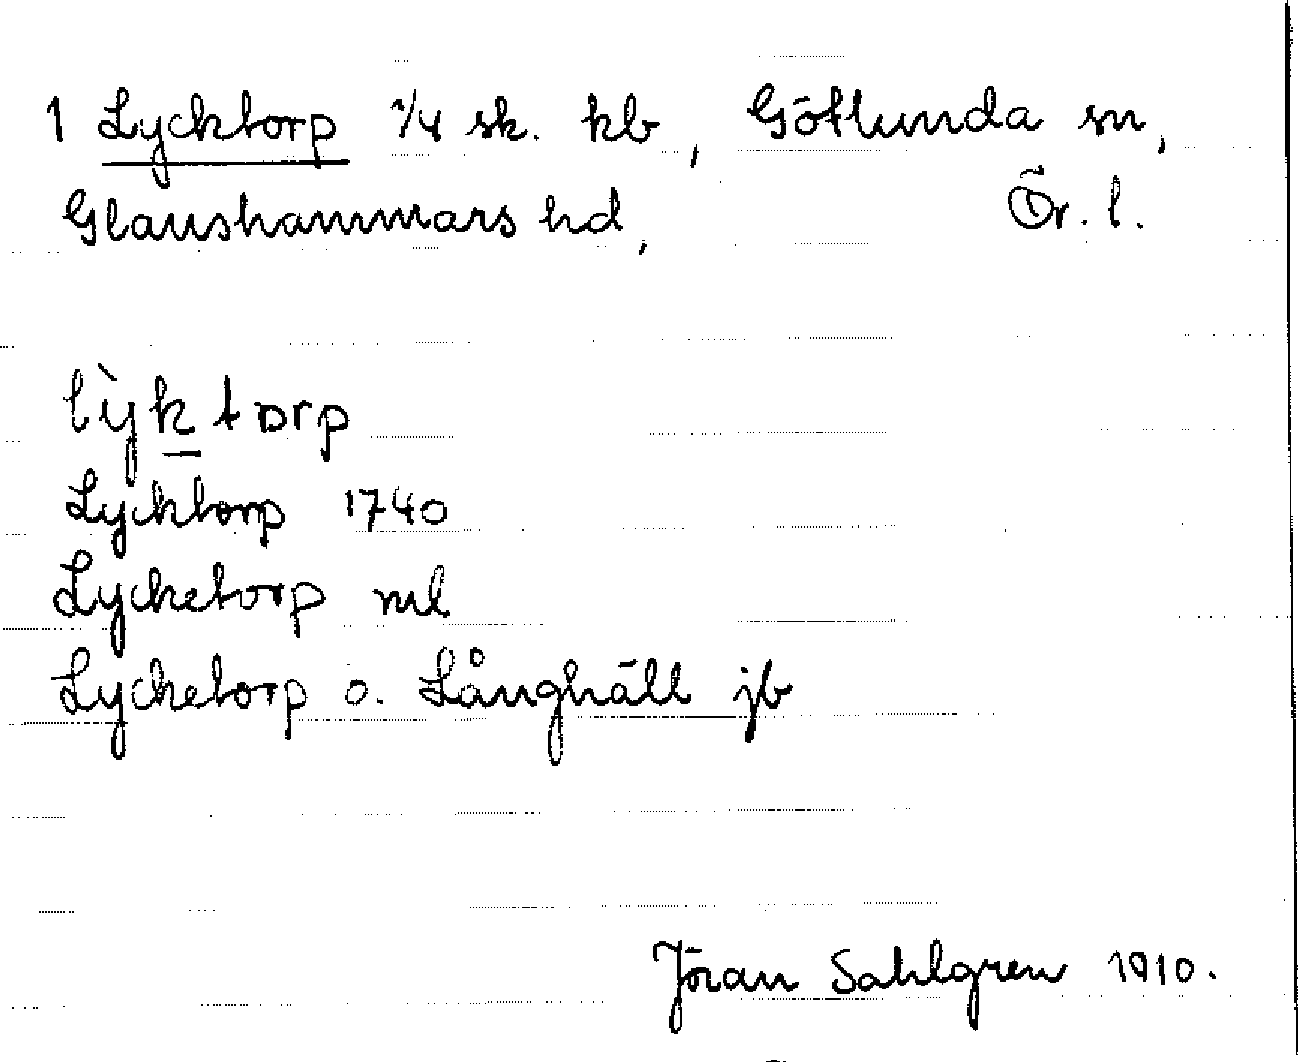 1 Lycktorp 1/4 sk. kb, Götlunda sn,
Glanshammars hd, Ör. l.
lỳktorp
Lycktorp 1740
Lycketorp ml
Lycketorp o. Långhäll jb
Jöran Sahlgren 1910.